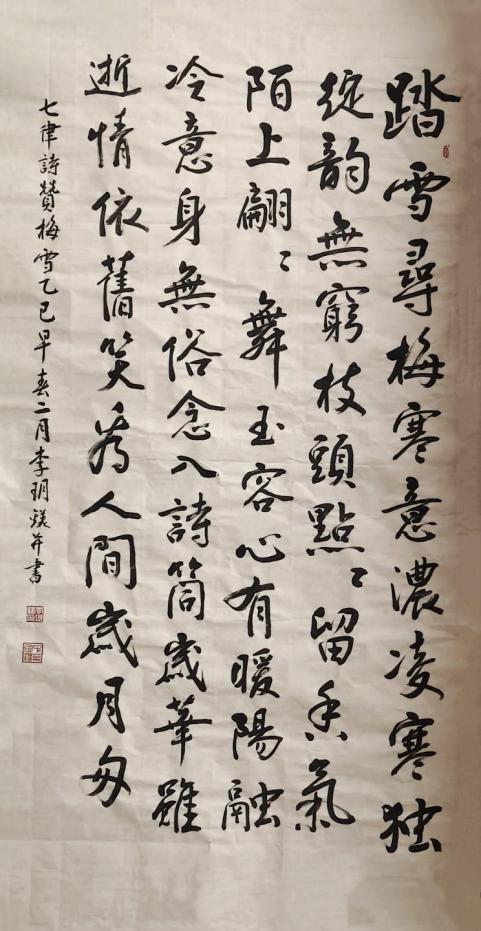 踏雪尋梅寒意濃凌寒独
綻韵無窮枝頭點〻留香氣
陌上翩〻舞玉容心有暖陽融
冷意身無俗念入詩筒歲華雖
逝情依舊笑看人間歲月匆
七律詩贊梅雪乙巳早春二月李玥燚并書